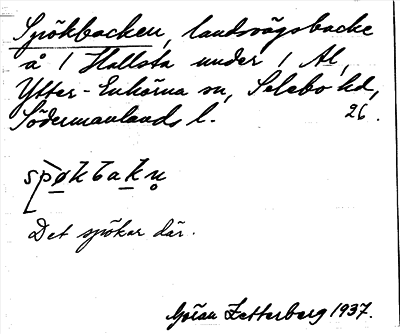 Spökbacken, landsvägsbacke
å 1 Hallsta under 1 Al,
Ytter-Enhörna sn, Selebo hd,
Södermanlands l. 26.
Det spökar där.
Göran Zetterberg 1937.